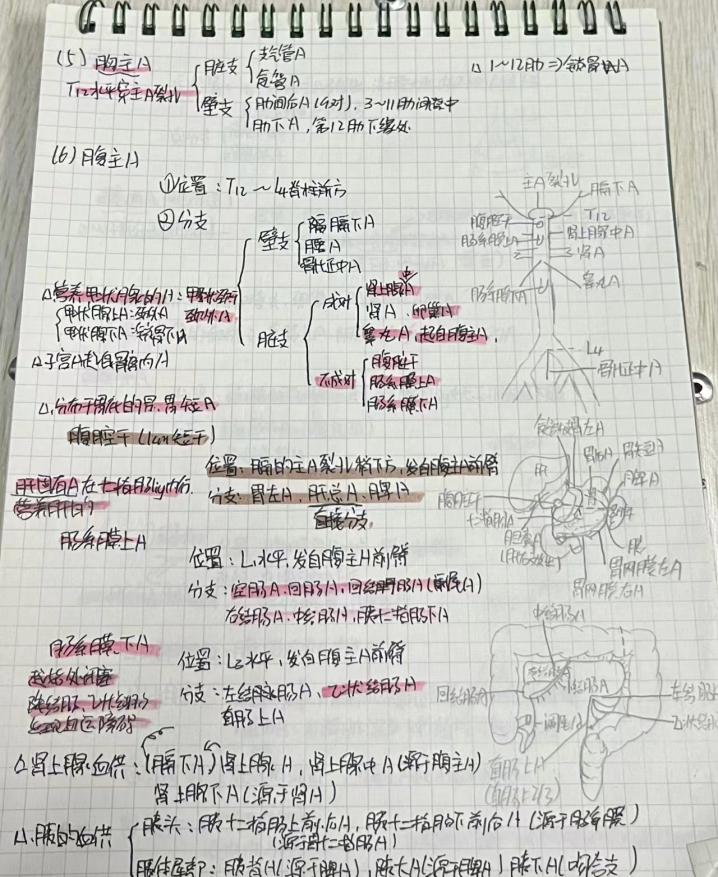 (5) 胸主A
T12水平穿主A裂孔
脏支
支气管A
食管A
壁支
肋间后A(9对), 3~11肋间隙中
肋下A, 第12肋下缘处
△ 1~12肋⇒
(6) 腹主A
①位置: T12 ~ L4脊柱前方
②分支
壁支
膈下A
腰A
骶正中A
脏支
成对
肾上腺中A
肾A 卵巢A
睾丸A, 起自腹主A,
不成对
腹腔干
肠系膜上A
肠系膜下A
△营养甲状腺的A:
甲状腺上A: 颈外A
甲状腺下A:
△子宫A起自髂内A
△分布于胃底的A: 胃短A
腹腔干(1cm短干)
位置: 膈的主A裂孔稍下方, 发自腹主A前壁
分支: 胃左A, 肝总A, 脾A
直接分支
肝固有A在十二指肠
营养肝的
肠系膜上A
位置: L1水平, 发自腹主A前壁
分支: 空肠A, 回肠A, 回结肠A(阑尾A)
右结肠A, 中结肠A, 胰十二指肠下A
肠系膜下A
位置: L3水平, 发自腹主A前壁
分支: 左结肠A, 乙状结肠A
直肠上A
起始处闭塞
降结肠, 乙状结肠
血运障碍
△肾上腺血供: (膈下A) 肾上腺上A, 肾上腺中A(源于腹主A)
肾上腺下A(源于肾A)
△胰的血供
胰头: 胰十二指肠上前后A, 胰十二指肠下前后A (源于肠系膜)
(源于胃十二指肠A)
胰体尾部: 胰背A(源于脾A), 胰大A(源于脾A) 胰下A(吻合支)
主A裂孔
膈下A
T12
腹腔干
肾上腺中A
肠系膜上A
肾A
睾丸A
肠系膜下A
L4
骶正中A
胃左A
胃短A
脾A
肝
腹腔干
十二指肠A
胆囊A
胰
胃网膜左A
胃网膜右A
中结肠A
回结肠A
阑尾A
直肠上A
(直肠上2/3)